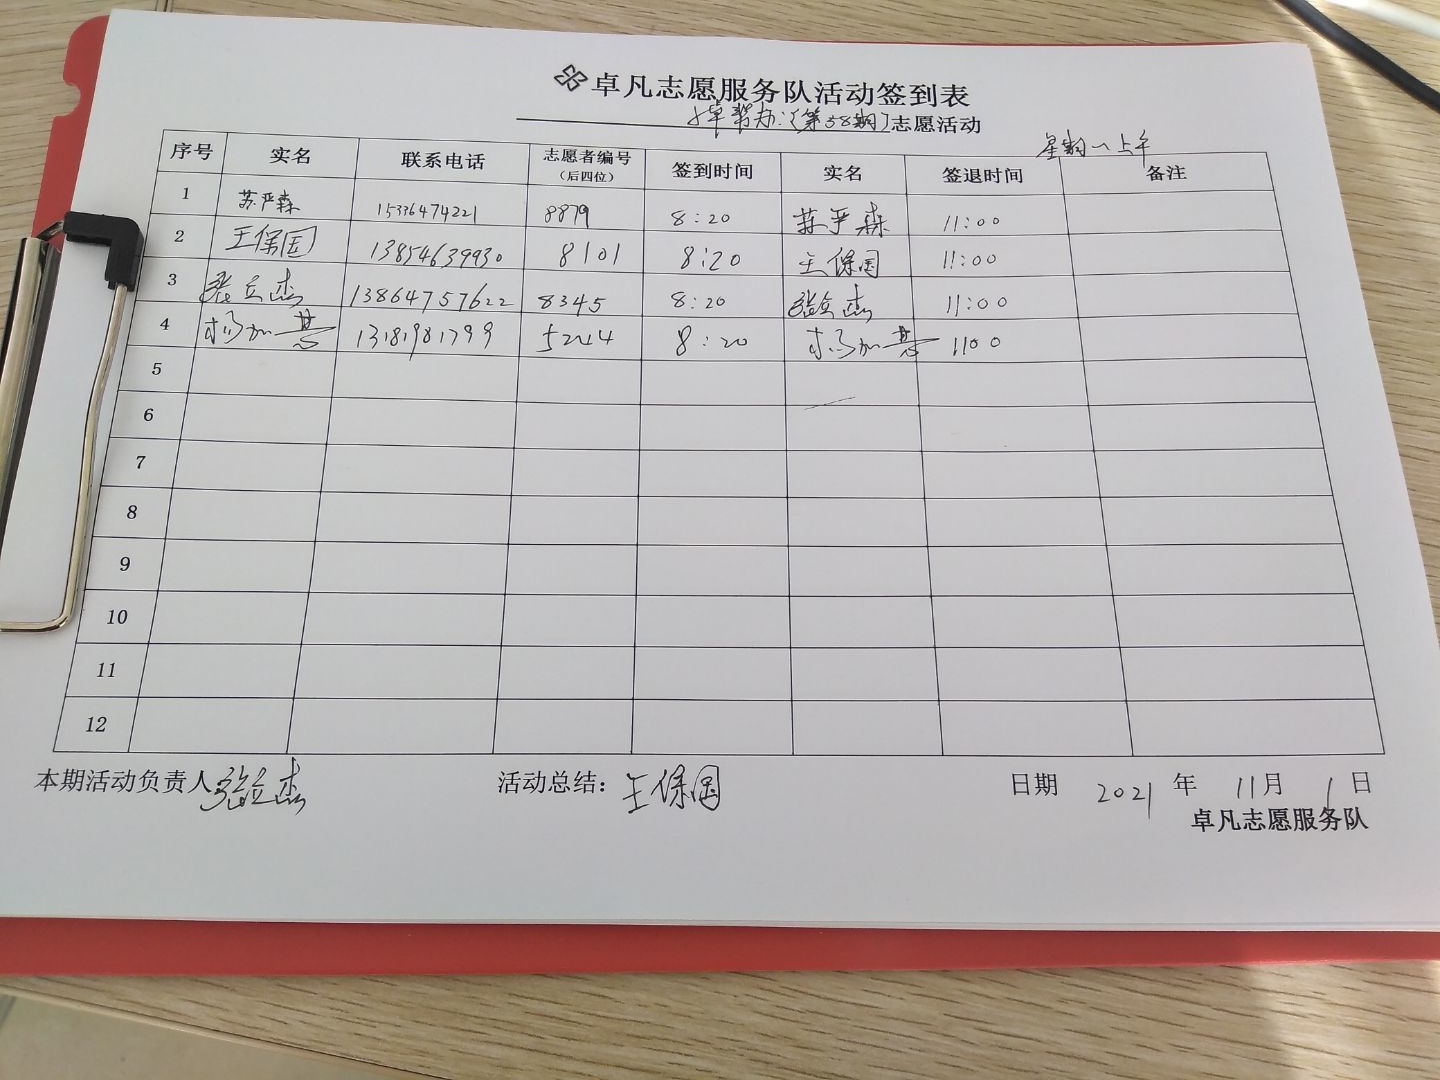 卓凡志愿服务队活动签到表
卓帮办:(第58期)志愿活动
星期一上午
序号 实名 联系电话 志愿者编号（后四位） 签到时间 实名 签退时间 备注
1 苏严森 15336474221 8879 8:20 苏严森 11:00
2 王保国 13854639930 8101 8:20 王保国 11:00
3 张立杰 13864757622 8345 8:20 张立杰 11:00
4 8:20 1100
5
6
7
8
9
10
11
12
本期活动负责人 张立杰 活动总结：王保国 日期 2021 年 11月 1日
卓凡志愿服务队